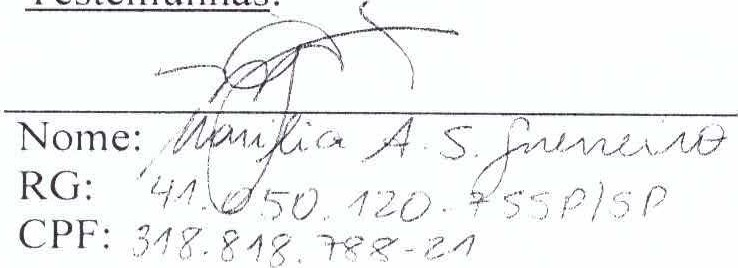 Testemunhas:
Nome: Marilia A. S. Guerreiro
RG: 41.050.120-7 SSP/SP
CPF: 318.818.788-21